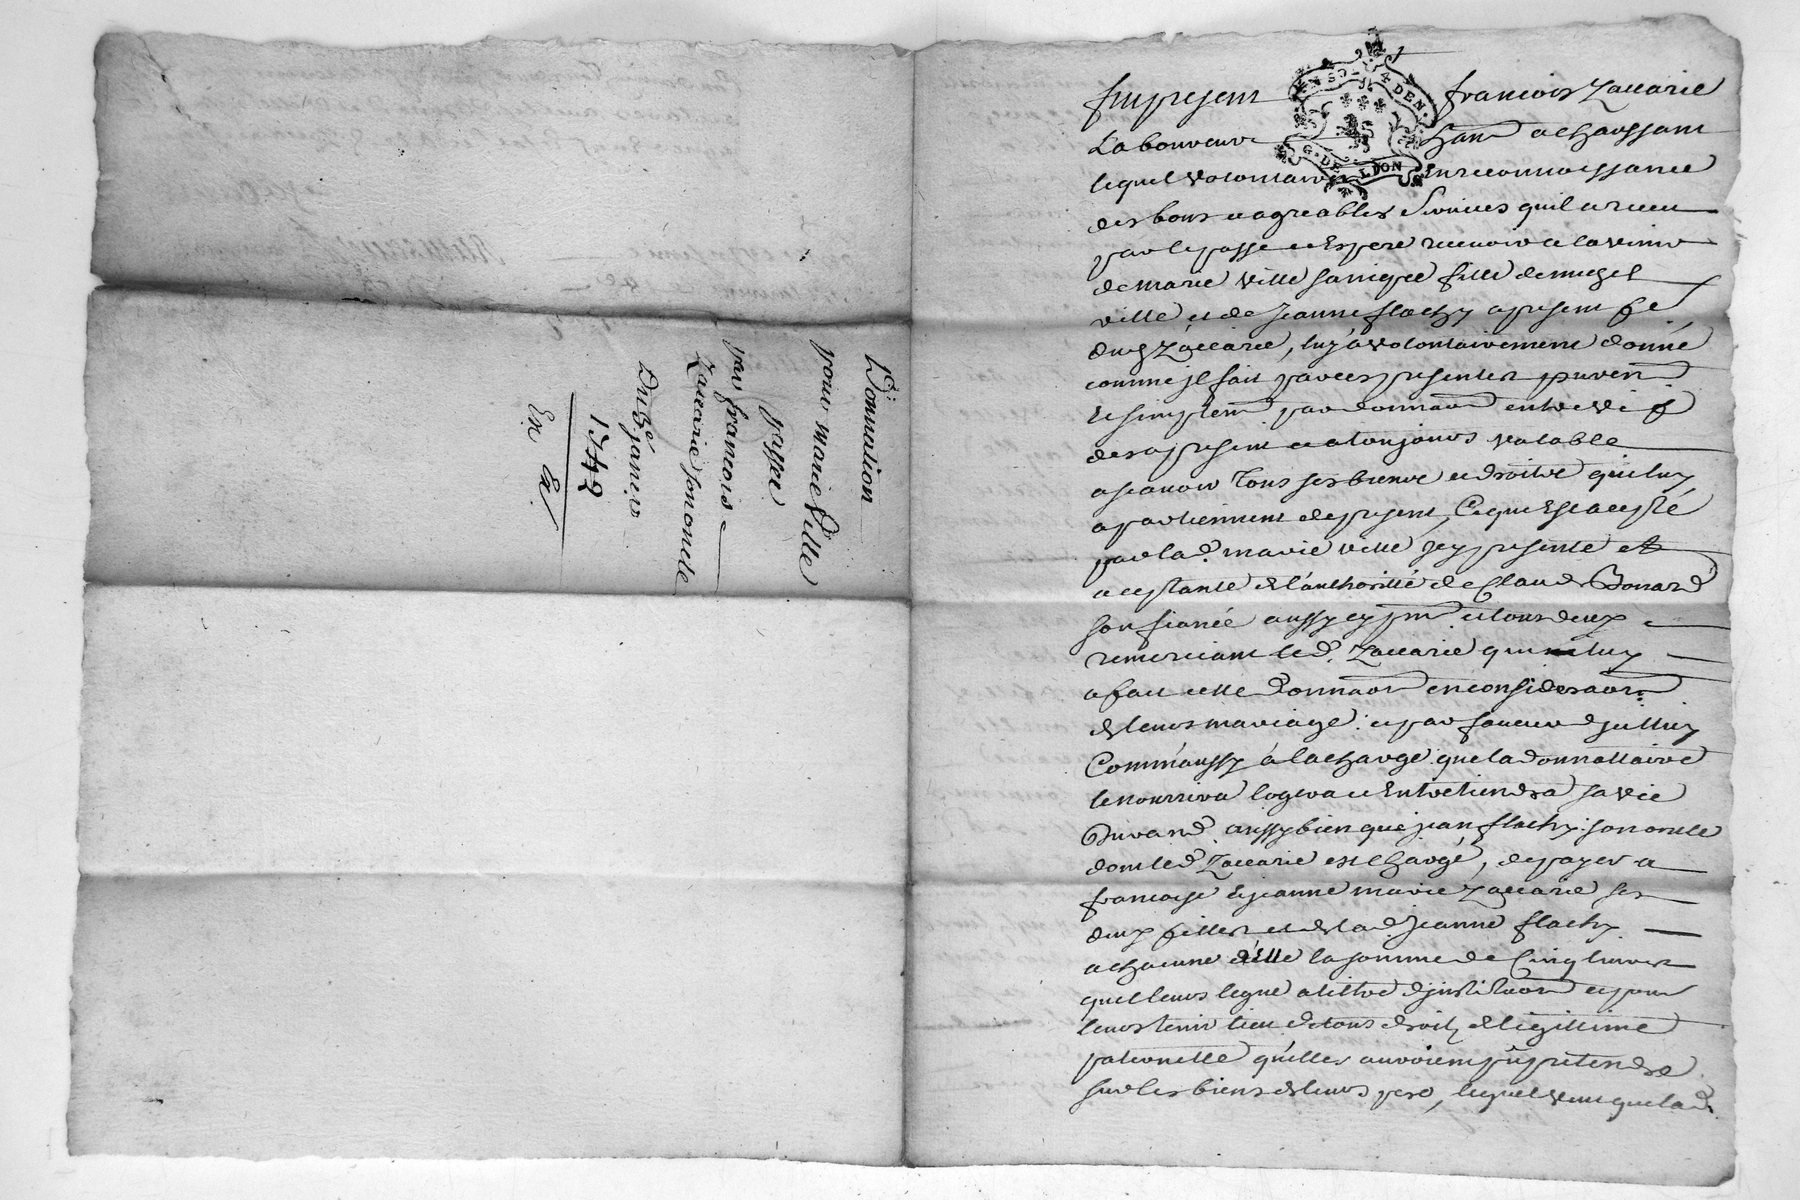 Donnation
pour marie Ville
passee
par francois
Zaccarie son oncle
Du 3e janvier
1742
Ex Ex
EN SOL 4 DEN.
G. DE LION
fut present francois Zaccarie
Laboureur han a chaussant
lequel volontaire En reconnoissance
des bons et agreables Services quil a receu
par le passe et Espere recevoir a la venir
de marie Ville sa niepce fille de
ville et de Jeanne flachy a present fe
dud Zaccarie, luy a volontairement donné
comme jl fait par ces presentes purem
Et simplem par donnaon entre vif
des a present et a toujours valable
a scavoir Tous ses biens et droits qui luy
apartiennent de present, Ce que Est accepté
par lad. marie ville jcy presente et
aceptante de l'authorité de Claude Bonard
son fiancé aussy cy pnt. et tous deux
remerciant led. Zaccarie qui luy
a fait cette Donnaon en consideraon
de leurs mariage et par faveur d'jcelluy
Comm'aussy à la charge que la donnattaire
le nourrira logera et Entretiendra sa vie
Durand aussy bien que jean flachy son oncle
dont led Zaccarie est chargé, de payer a
francoise et jeanne marie Zaccarie ses
deux filles et de lad jeanne flachy
a chacune d'elle la somme de Cinq livres
quel leurs legue a tittre d'jnstituon et pour
leurs tenir lieu de tous droits de legittime
paternelle qu'elles auroient pû pretendre
sur les biens de leurs pere, lequel veut que lad